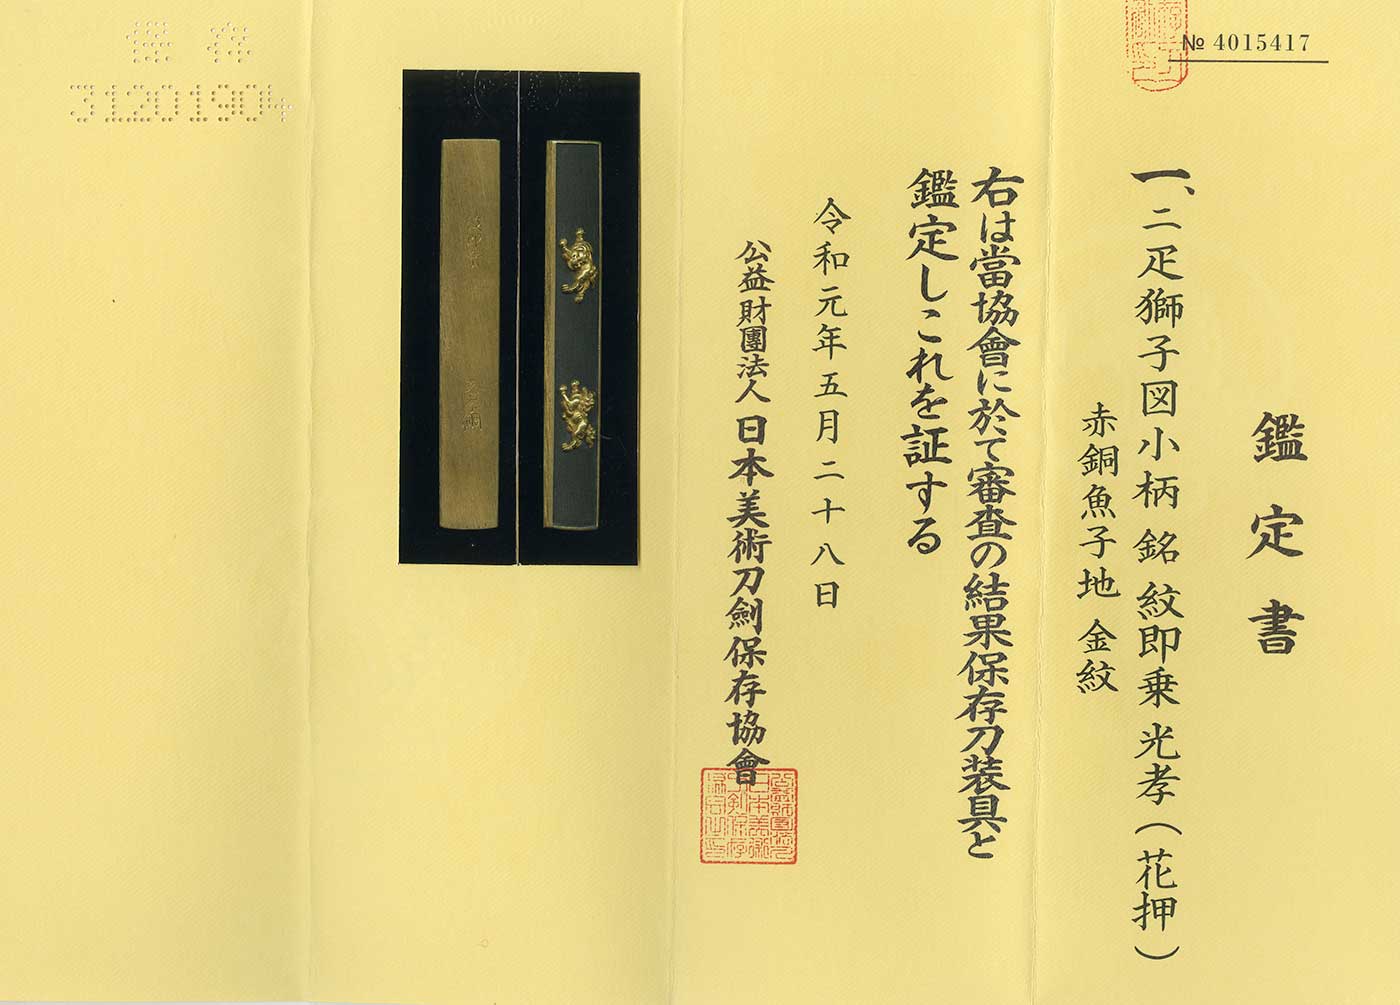 № 4015417
鑑定書
一、二疋獅子図小柄 銘 紋即乗 光孝(花押)
赤銅魚子地 金紋
右は當協會に於て審査の結果保存刀装具と
鑑定しこれを証する
令和元年五月二十八日
公益財團法人 日本美術刀劍保存協會
保存
31201904